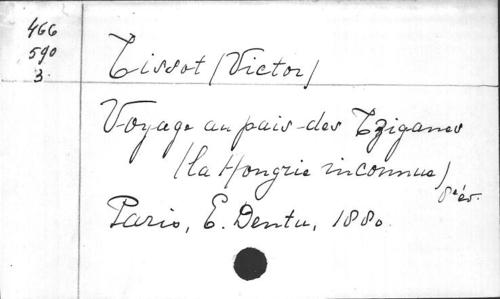 466
590
3.
Tissot (Victor)
Voyage au pais des Tziganes
(la Hongrie inconnue)
8e éd.
Paris, E. Dentu, 1880.